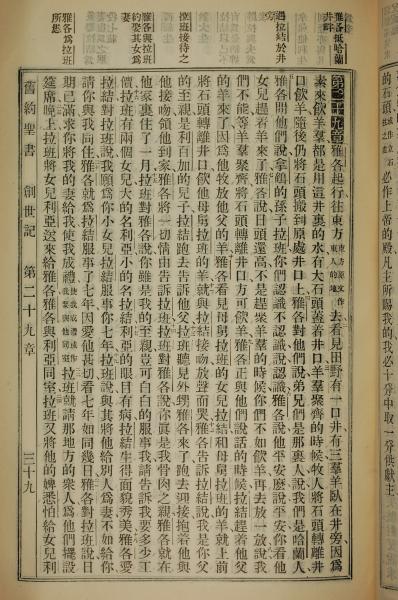 的石頭必作上帝的殿凡主所賜我的我必十分中取一分供獻主
遇拉結於井
拉班接待之
雅各與拉班
約娶其女為
妻
雅各為拉班
所愚
第二十九章雅各起行往東方去看見田野有一口井有三羣羊臥在井旁因爲
素來飲羊羣都是用這井裏的水有大石頭蓋着井口羊羣聚齊的時候牧人將石頭轉離井
口飲羊隨後仍將石頭搬到原處井口上雅各對他們說弟兄們是那裏人說我們是哈蘭人
雅各問他們說拿鶴的孫子拉班你們認識不認識說認識雅各說他平安麽說平安你看他
女兒趕着羊來了雅各說日頭還高不是趕聚羊羣的時候你們不如飲羊再去放一放說我
們不能等羊羣聚齊將石頭轉離井口方可飲羊雅各正與他們說話的時候拉結趕着他父
的羊來了因爲他牧放他父的羊雅各看見母舅拉班的女兒拉結和母舅拉班的羊就上前
將石頭轉離井口飲他母舅拉班的羊就與拉結接吻放聲而哭雅各告訴拉結說我是你父
的至親是利百加的兒子拉結跑去告訴他父拉班聽見外甥雅各來了跑去迎接抱着他與
他接吻領他到家雅各將一切情由告訴拉班拉班對雅各說你眞是我骨肉之親雅各就在
他家裏住了一月拉班對雅各說你雖是我的至親豈可白白的服事我請告訴我要多少工
價拉班有兩個女兒大的名利亞小的名拉結利亞的眼目有病拉結生得面貌秀美雅各愛
拉結對拉班說我願爲你小女兒拉結服事你七年拉班說與其將他給別人爲妻不如給你
請你與我同住雅各就爲拉結服事了七年因愛他甚切看七年如同幾日雅各對拉班說日
期已滿求你將我的妻給我使我成禮拉班就請那地方的衆人爲他們擺設
筵席晚上拉班將女兒利亞送來給雅各雅各與利亞同室拉班又將他的婢悉怕給女兒利
舊約聖書 創世記 第二十九章 三十九